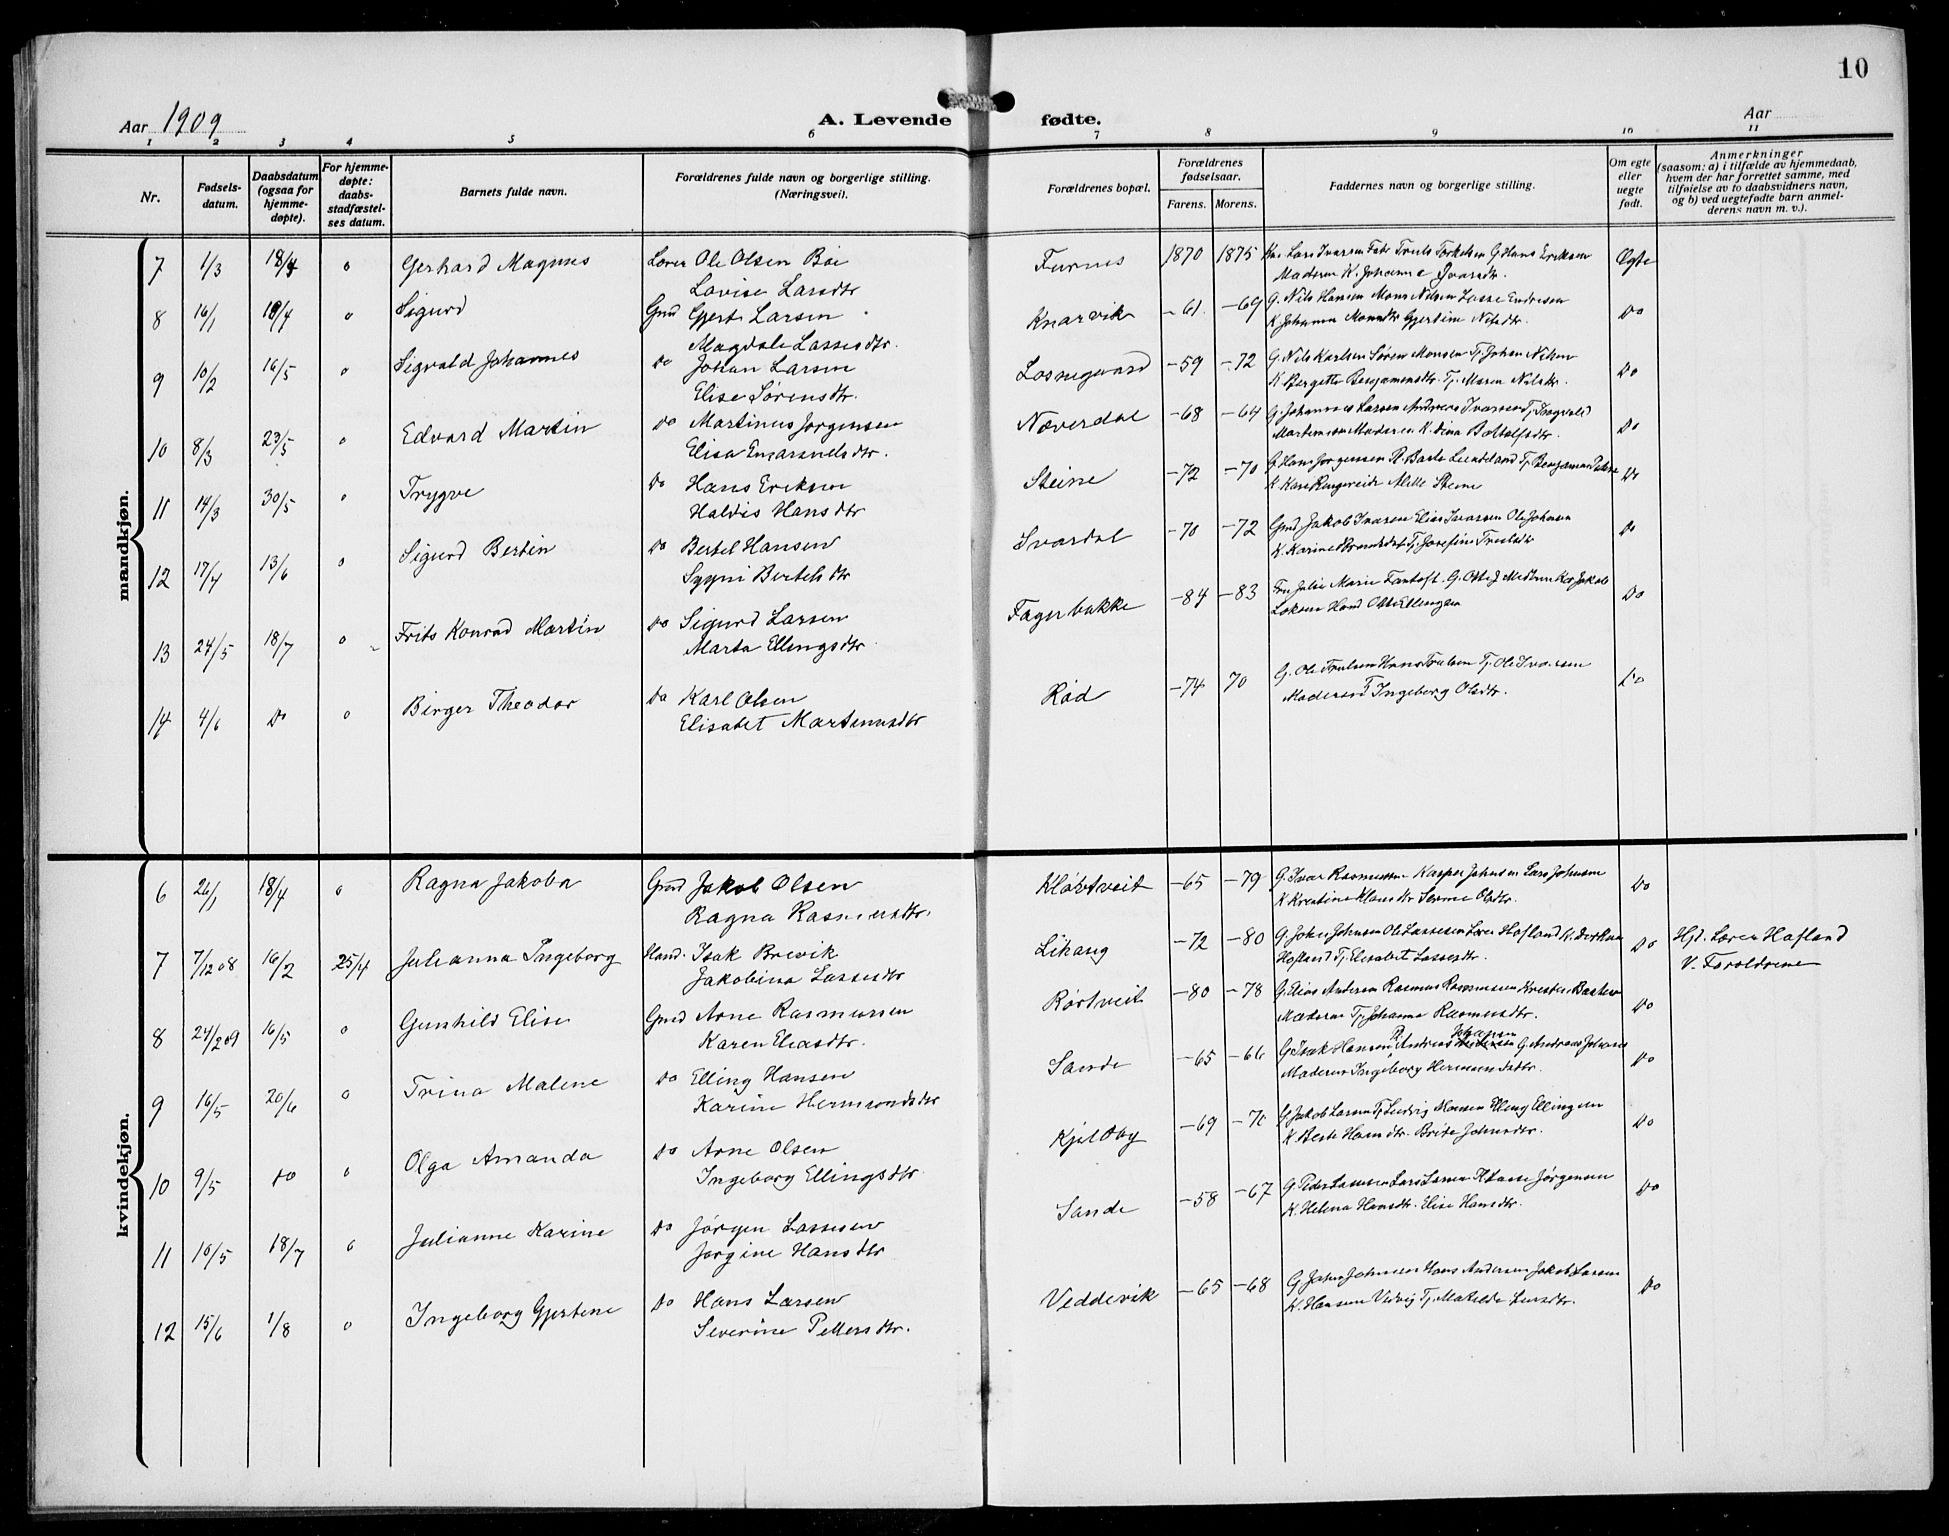 10
Aar 1909 A. Levende fødte. Aar
1 2 3 4 5 6 7 8 9 10 11
Nr. Fødsels-datum. Daabsdatum (ogsaa for hjemme-døpte). For hjemme-døpte: daabs-stadfæstel-ses datum. Barnets fulde navn. Forældrenes fulde navn og borgerlige stilling. (Næringsvei). Forældrenes bopæl. Forældrenes fødselsaar. Farens. Morens. Faddernes navn og borgerlige stilling. Om egte eller uegte født. Anmerkninger (saasom: a) i tilfælde av hjemmedaab, hvem der har forrettet samme, med tilføielse av to daabsvidners navn, og b) ved uegtefødte barn anmel-derens navn m. v.).
mandkjøn.
7 1/3 18/4 0 Gerhard Magnus Lærer Ole Olsen Böe Furnes 1870 1875 Lars Ivarsen Truls Torkelsen G. Hans Eriksen Ægte
Lovise Larsdtr Moderen K. Johanne Ivarsdtr.
8 16/1 18/4 0 Sigurd Gmd Gjert Larsen Knarvik -61 -69 G. Nils Hansen Mons Nilsen Lasse Endresen Do
Magdale Lassesdtr. K Johanna Monsdtr Gjertine Nilsdtr.
9 10/2 16/5 0 Sigvald Johannes Do Johan Larsen Losnegaard -59 -72 G. Nils Karlsen Søren Monsen Tj. Johan Nilsen Do
Elise Sørensdtr. K. Bergitte Benjaminsdtr. Tj. Maren Nilsdtr.
10 8/3 23/5 0 Edvard Martin Do Martinus Jorgensen Nøverdal -68 -64 G. Johannes Larsen Andreas Ivarsen Tj. Ingvald Do
Elisa Moderen K. Lina
11 14/3 30/5 0 Trygve Do Hans Eriksen Steine -72 -70 G. Hans Jorgensen Do
Haldis Hansdtr K. Kari Steine
12 17/4 13/6 0 Sigurd Bertin Do Bertel Hansen Svardal -70 -72 Gmd Jakob Ivarsen Elias Ivarsen Ole Johnsen Do
Sygni Bertelsdtr K. Karine Tj. Josefine Trulsdtr
13 24/5 18/7 0 Frits Konrad Martin Do Sigurd Larsen Fagerbakke -84 -83 Julie Marie Fantoft. G. Jakob Do
Marta Ellingsdtr Ellingsen
14 4/6 Do 0 Birger Theodor Do Karl Olsen Rød -74 70 G. Ole Trulsen Hans Trulsen Tj. Ole Ivarsen Do
Elisabet Martinusdtr Moderen Tj Ingeborg Olsdtr.
kvindekjøn.
6 26/1 18/4 0 Ragna Jakoba Gmd Jakob Olsen Kløvtveit -65 -79 G. Ivar Rasmussen Kasper Johnsen Lars Johnsen Do
Ragna Rasmusdtr. K Kristine Klausdtr Olsdtr.
7 7/12 08 16/2 25/4 Julianna Ingeborg Hand. Isak Brevik Lihaug -72 -80 G. John Johnsen Ole Lassesen Lærer Hofland K. Do Hjd. Lærer Hofland
Jakobina Lassesdtr Hofland Tj. Elisabet Lassesdtr. V. Foreldrene
8 24/2 09 16/5 0 Gunhild Elise Gmd Arne Rasmussen Rørtveit -80 -78 G. Elias Andersen Rasmus Rasmussen Do
Karen Eliasdtr. Moderen Tj. Johanna Rasmusdtr.
9 16/5 20/6 0 Trina Malene Do Elling Hansen Sande -65 -66 G. Isak Hansen Andreas Johansen G. Andreas Do
Karine Hermundsdtr Moderen Ingeborg Hermundsdtr.
10 9/5 Do 0 Olga Amanda Do Arne Olsen Kjelby -69 -70 G. Jakob Larsen Tj. Ludvig Monsen Elling Ellingsen Do
Ingeborg Ellingsdtr K. Brita Johnsdtr.
11 10/5 18/7 0 Julianne Karine Do Jørgen Lassesen Sande -58 -67 G. Peder Lassesen Lars Larsen Jørgensen Do
Jørgine Hansdtr K. Helena Hansdtr. Elise Hansdtr.
12 15/6 1/8 0 Ingeborg Gjertine Do Hans Larsen Veddevik -65 -68 G. John Johnsen Hans Andersen Jakob Larsen Do
Severine Pettersdtr. K. Hansine Tj. Matilde Larsdtr.